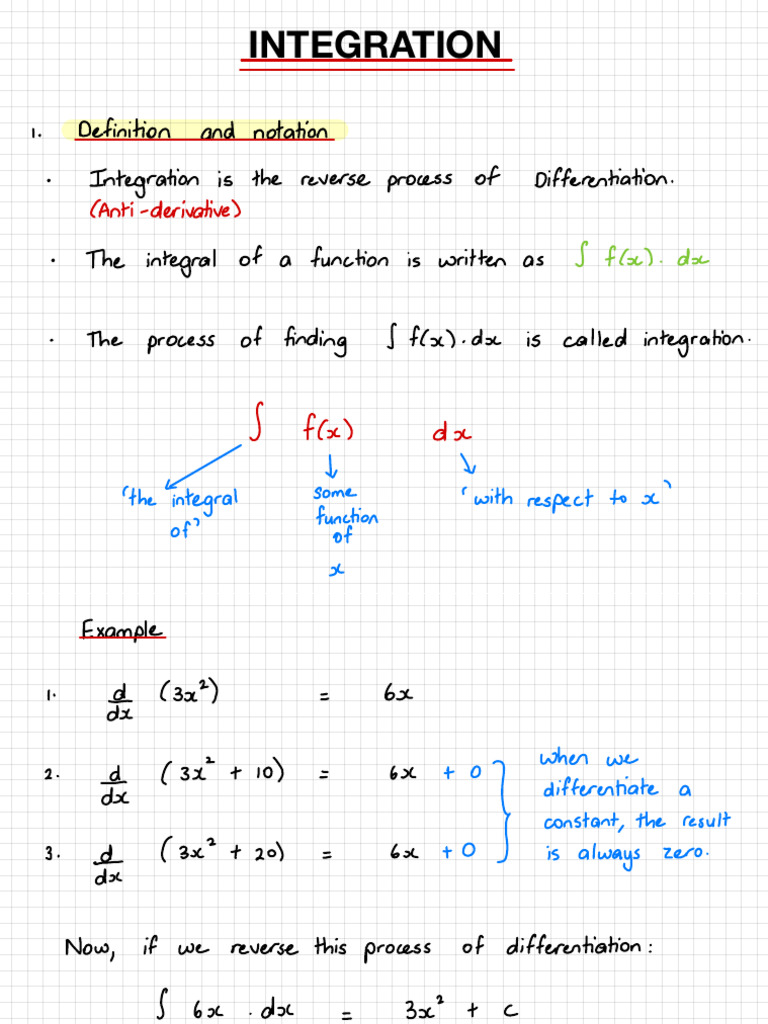 INTEGRATION
1. Definition and notation
· Integration is the reverse process of Differentiation.
(Anti-derivative)
· The integral of a function is written as ∫ f(x). dx
· The process of finding ∫ f(x).dx is called integration.
∫ f(x) dx
'the integral
of'
some
function
of
x
'with respect to x'
Example
1. d/dx (3x²) = 6x
2. d/dx (3x² + 10) = 6x + 0
3. d/dx (3x² + 20) = 6x + 0
when we
differentiate a
constant, the result
is always zero.
Now, if we reverse this process of differentiation:
∫ 6x .dx = 3x² + c